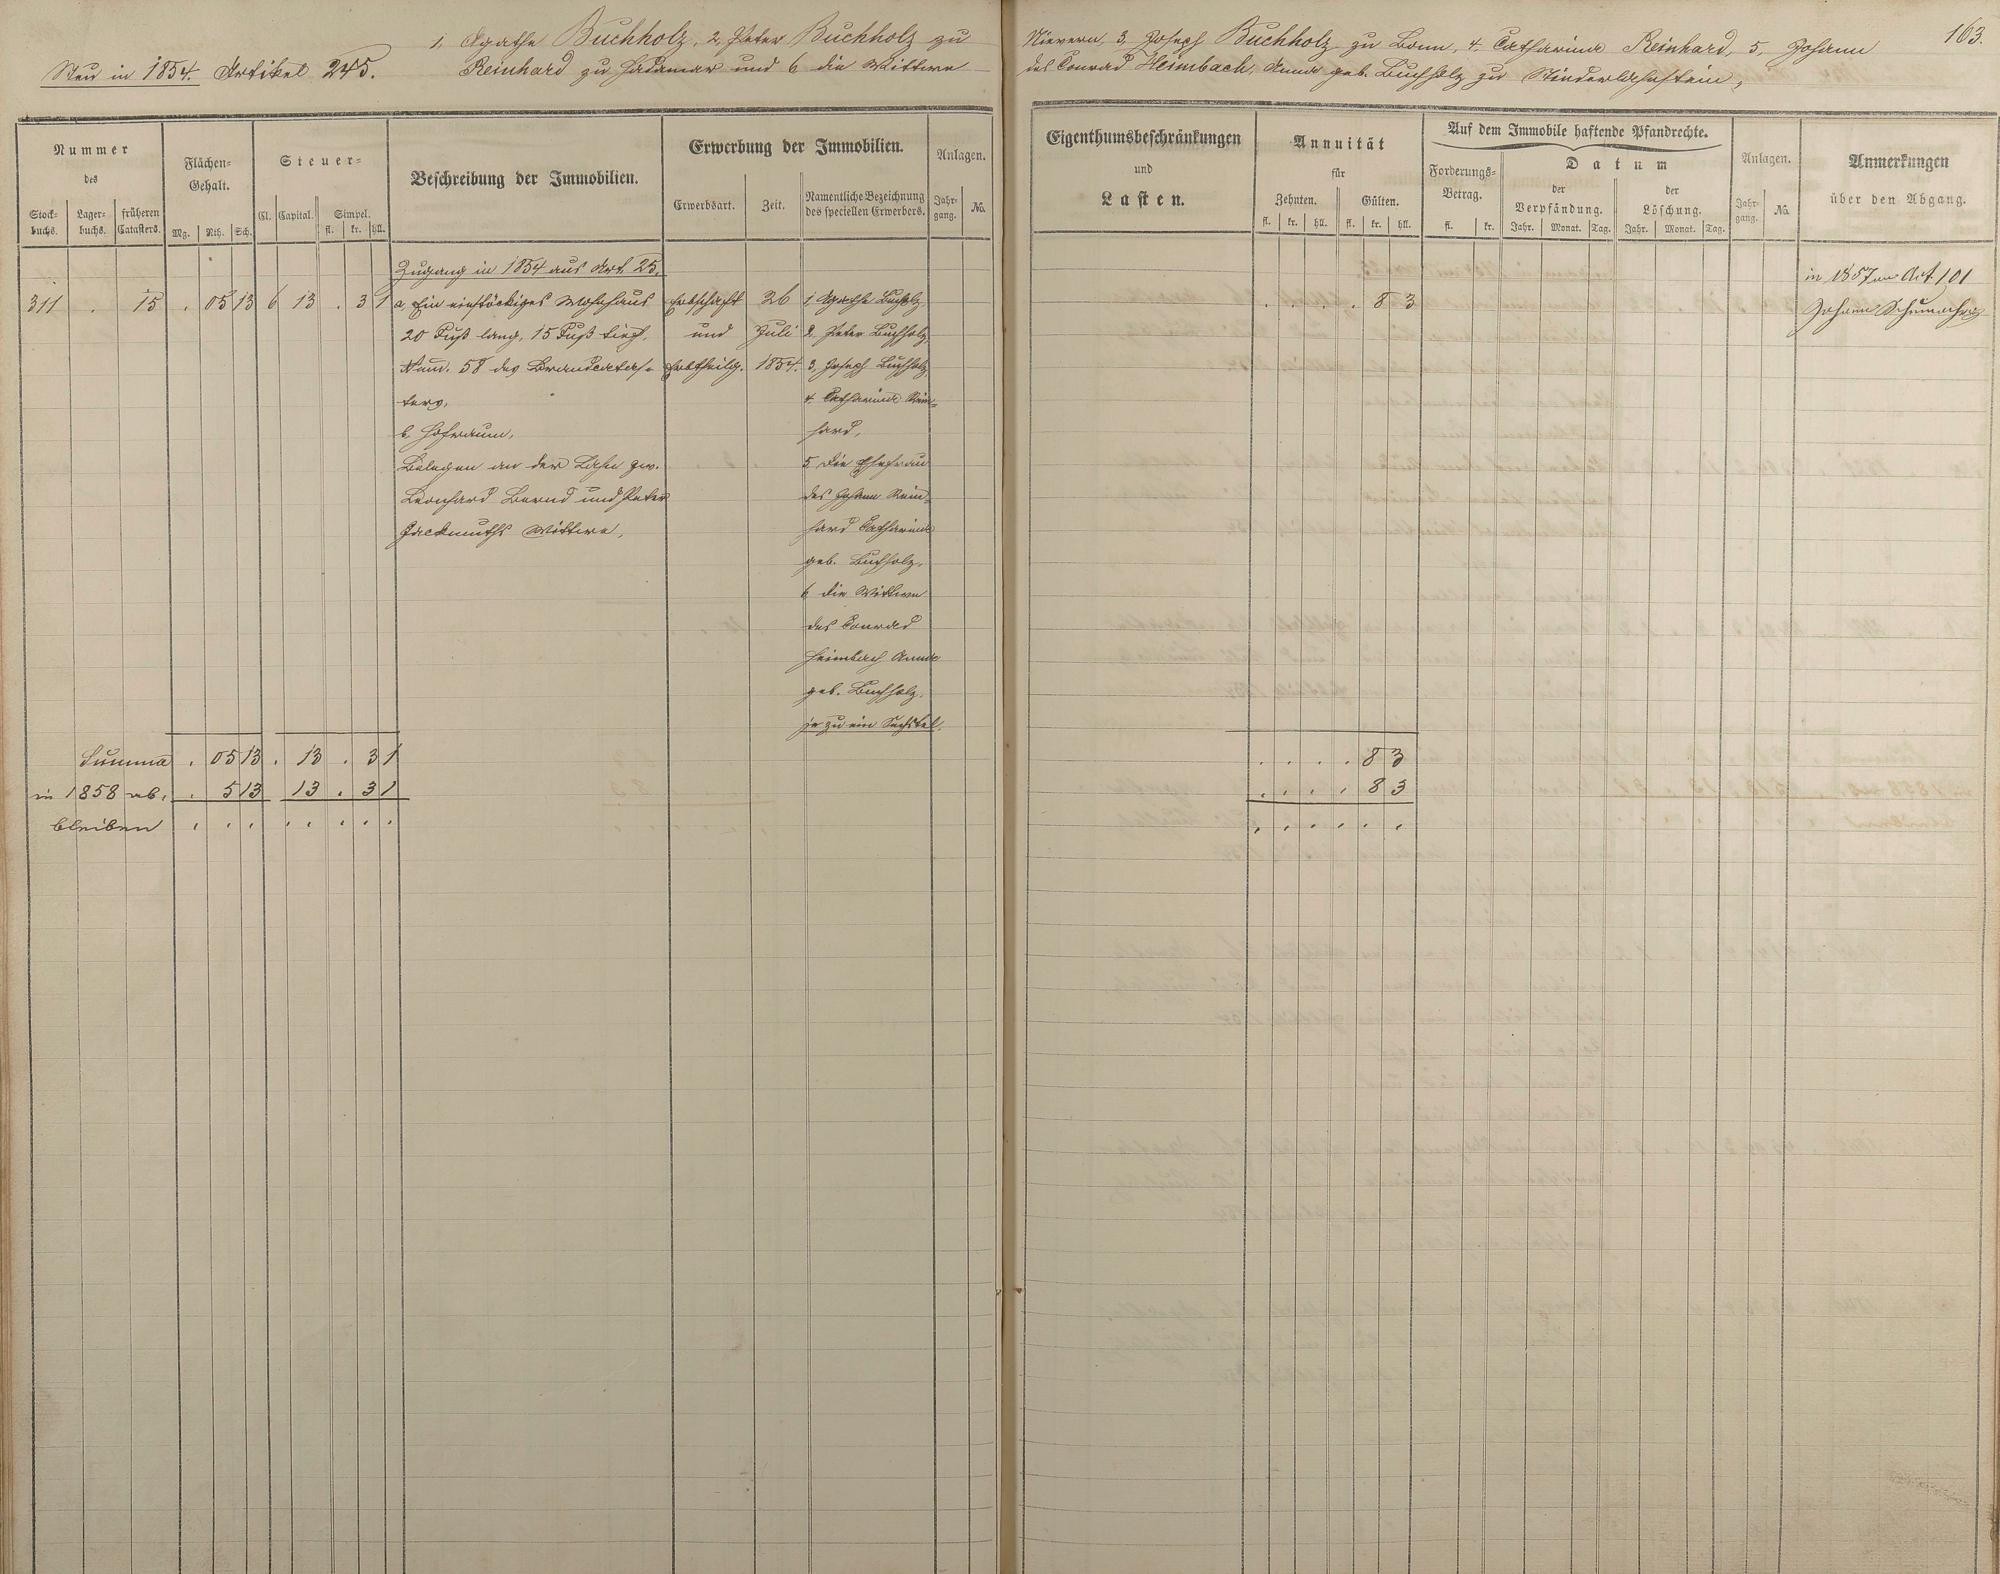 1, Agathe Buchholz, 2, Peter Buchholz zu Nievern, 3, Joseph Buchholz zu Bonn, 4. Catharina Reinhard, 5, Johann
163.
Neu in 1854. Artikel 245.
Reinhard zu Hadamar und 6 die Wittwe des Conrad Heimbach, Anna geb. Buchholz zu Niederlahnstein,
Nummer
des
Stock-
buchs.
Lager-
buchs.
früheren
Catasters.
Flächen-
Gehalt.
Mg. Rth. Sch.
Steuer-
Cl. Capital. Simpel.
fl. kr. hll.
Beschreibung der Immobilien.
Erwerbung der Immobilien.
Erwerbsart. Zeit.
Namentliche Bezeichnung
des speciellen Erwerbers.
Anlagen.
Jahr-
gang.
No.
Eigenthumsbeschränkungen
und
Lasten.
Annuität
für
Zehnten. Gülten.
fl. kr. hll. fl. kr. hll.
Auf dem Immobile haftende Pfandrechte.
Forderungs-
Betrag.
fl. kr.
Datum
der
Verpfändung.
Jahr. Monat. Tag.
der
Löschung.
Jahr. Monat. Tag.
Anlagen.
Jahr-
gang.
No.
Anmerkungen
über den Abgang.
Zugang in 1854 aus Art. 25.
in 1857 an Art 101
311 . 15 . 05 13 6 13 . 3 1 a, Ein einstöckiges Wohnhaus Erbschaft 26 1. Agathe Buchholz . . . . 8 3 Johann Schumacher
20 Fuß lang, 15 Fuß tief, und Juli 2. Peter Buchholz,
Num. 58 des Brandcatas- Erbtheilg. 1854. 3, Joseph Buchholz,
ters, 4. Catharina Rein-
b. Hofraum, hard,
Belegen an der Lahn zw. 5. die Ehefrau
Leonhard Bernd und Peter des Johann Rein-
Jackmuths Wittwe, hard Catharina
geb. Buchholz.
6 die Wittwe
des Conrad
Heimbach Anna
geb. Buchholz.
je zu ein Sechstel.
Summa . 05 13 . 13 . 3 1 . . . . 8 3
in 1858 ab, . 5 13 13 . 3 1 . . . . 8 3
bleiben . . . . . . . . . . . . . .